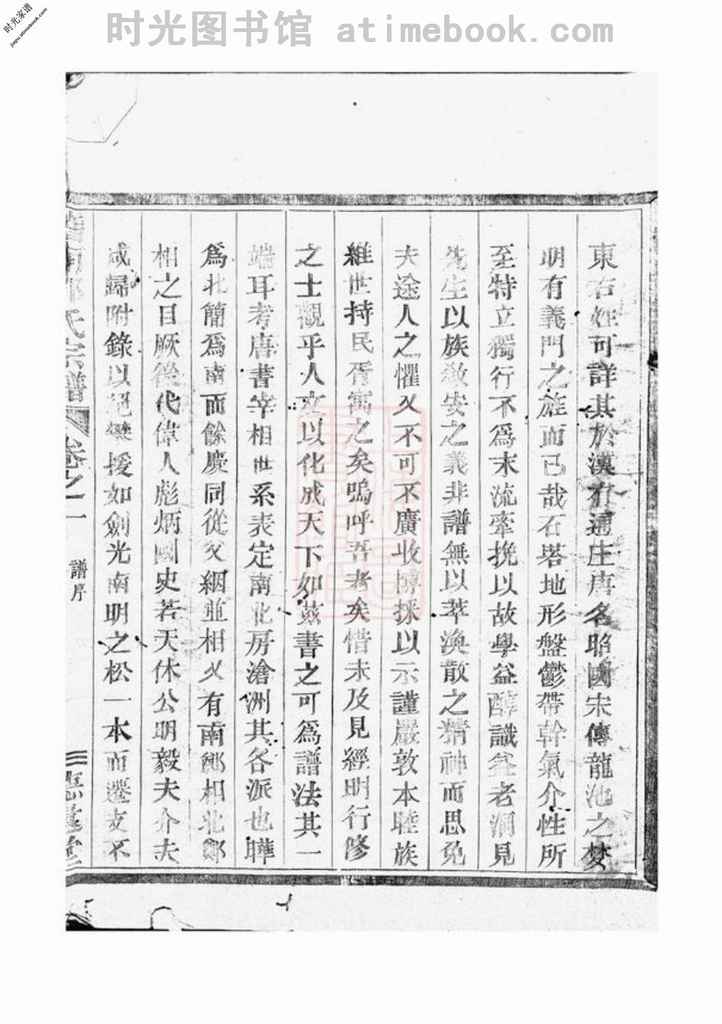 时光图书馆 atimebook.com
时光家谱
jiapu.atimebook.com
東右姓可詳其於漢有通庄唐名昭國宋傳龍池之梵
明有義門之旌而已哉石塔地形盤鬱帶幹氣介性所
至特立獨行不爲末流牽挽以故學益醇識益老洞見
先生以族敘安之義非譜無以萃渙散之精神而思免
夫途人之懼又不可不廣收博採以示謹嚴敦本睦族
維世持民胥寓之矣嗚呼吾耆矣惜未及見經明行修
之士觀乎人文以化成天下如茲書之可爲譜法其一
端耳考唐書宰相世系表定南北房滄洲其各派也曄
爲北簡爲南而餘慶同從父絪並相又有南鄭相北鄭
相之目厥後代偉人彪炳國史若天休公明毅夫介夫
咸歸附錄以絕攀援如劍光南明之松一本而遷支不
氏宗譜 卷之一 譜序 三